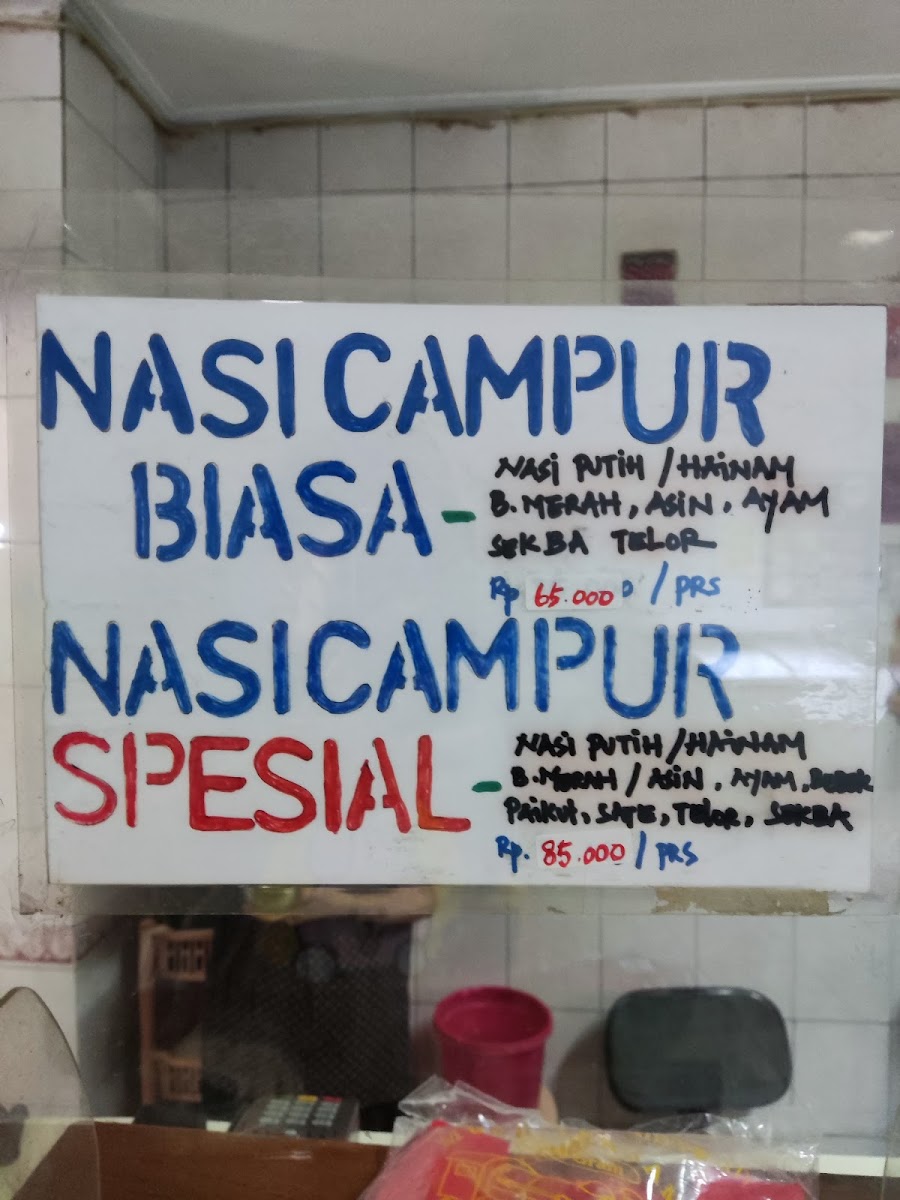 NASI CAMPUR
BIASA -
NASI PUTIH / HAINAM
B. MERAH, ASIN, AYAM
SEKBA TELOR
Rp 65.000 / PRS
NASI CAMPUR
SPESIAL -
NASI PUTIH / HAINAM
B. MERAH / ASIN, AYAM, BEBEK
PAIKUT, SATE, TELOR, SEKBA
Rp. 85.000 / PRS